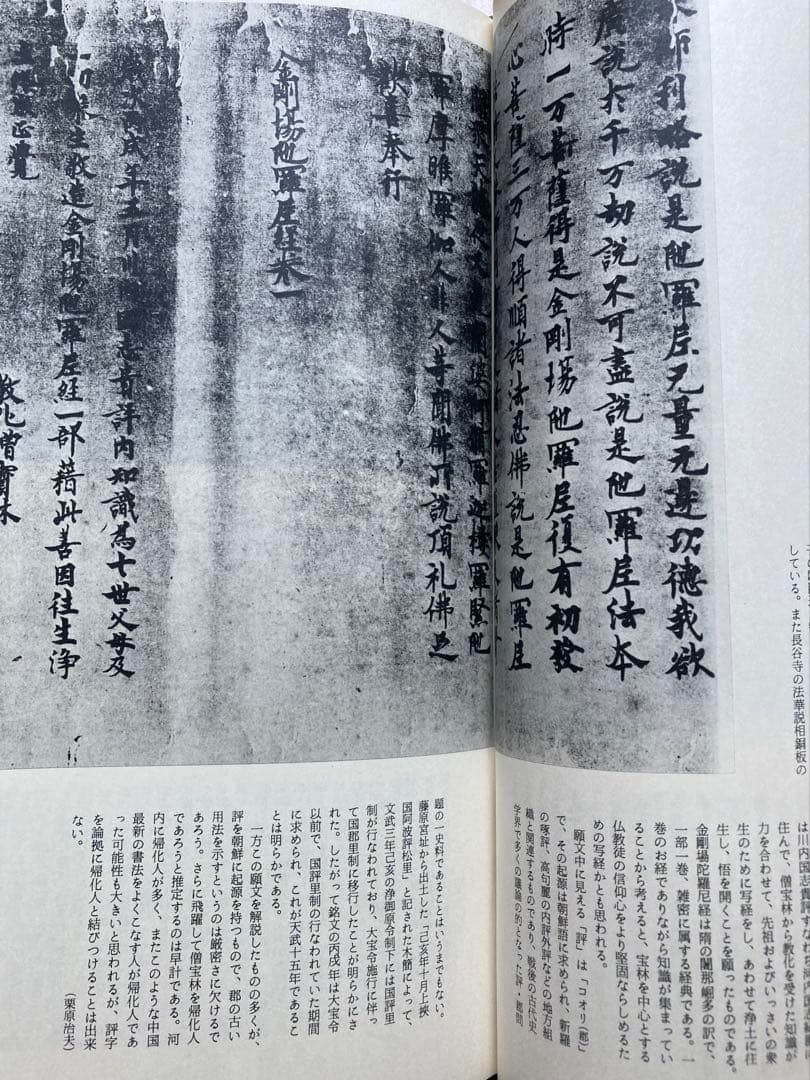 師利略説是陀羅尼无量无邊功德我欲
廣説於千万劫説不可盡説是陀羅尼法本
時一万菩薩得是金剛場陀羅尼復有初發
心菩薩三万人得順諸法忍佛説是陀羅尼
羅迦樓羅緊陀
羅摩睺羅伽人非人等聞佛所説頂礼佛足
歡喜奉行
金剛場陀羅尼経巻一
歳次丙戌年五月川内国志貴評内知識為七世父母及
一切衆生敬造金剛場陀羅尼経一部藉此善因往生浄
土終成正覺
教化僧寶林
している。また長谷寺の法華説相銅板の
は川内国志貴評すなわち
住んで、僧宝林から教化を受けた知識が
力を合わせて、先祖およびいっさいの衆
生のために写経をし、あわせて浄土に往
生し、悟を開くことを願ったものである。
金剛場陀羅尼経は隋の闍那崛多の訳で、
一部一巻、雑密に属する経典である。一
巻のお経でありながら知識が集まってい
ることから考えると、宝林を中心とする
仏教徒の信仰心をより堅固ならしめるた
めの写経かとも思われる。
願文中に見える「評」は「コオリ(郡)」
で、その起源は朝鮮語に求められ、新羅
の啄評、高句麗の内評外評などの地方組
織と関連するものであり、戦後の古代史
学界で多くの議論の的となった評・郡問
題の一史料であることはいうまでもない。
藤原宮址から出土した「己亥年十月上挾
国阿波評松里」と記された木簡によって、
文武三年己亥の浄御原令制下には国評里
制が行なわれており、大宝令施行に伴っ
て国郡里制に移行したことが明らかにさ
れた。したがって銘文の丙戌年は大宝令
以前で、国評里制の行なわれていた期間
に求められ、これが天武十五年であるこ
とは明らかである。
一方この願文を解説したものの多くが、
評を朝鮮に起源を持つもので、郡の古い
用法を示すというのは厳密さに欠けるで
あろう。さらに飛躍して僧宝林を帰化人
であろうと推定するのは早計である。河
内に帰化人が多く、またこのような中国
最新の書法をよくこなす人が帰化人であ
った可能性も大きいと思われるが、評字
を論拠に帰化人と結びつけることは出来
ない。
（栗原治夫）